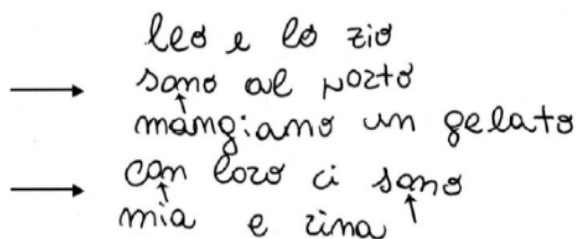 leo e lo zio
sano al porto
mangiano un gelato
can loro ci sano
mia e rina